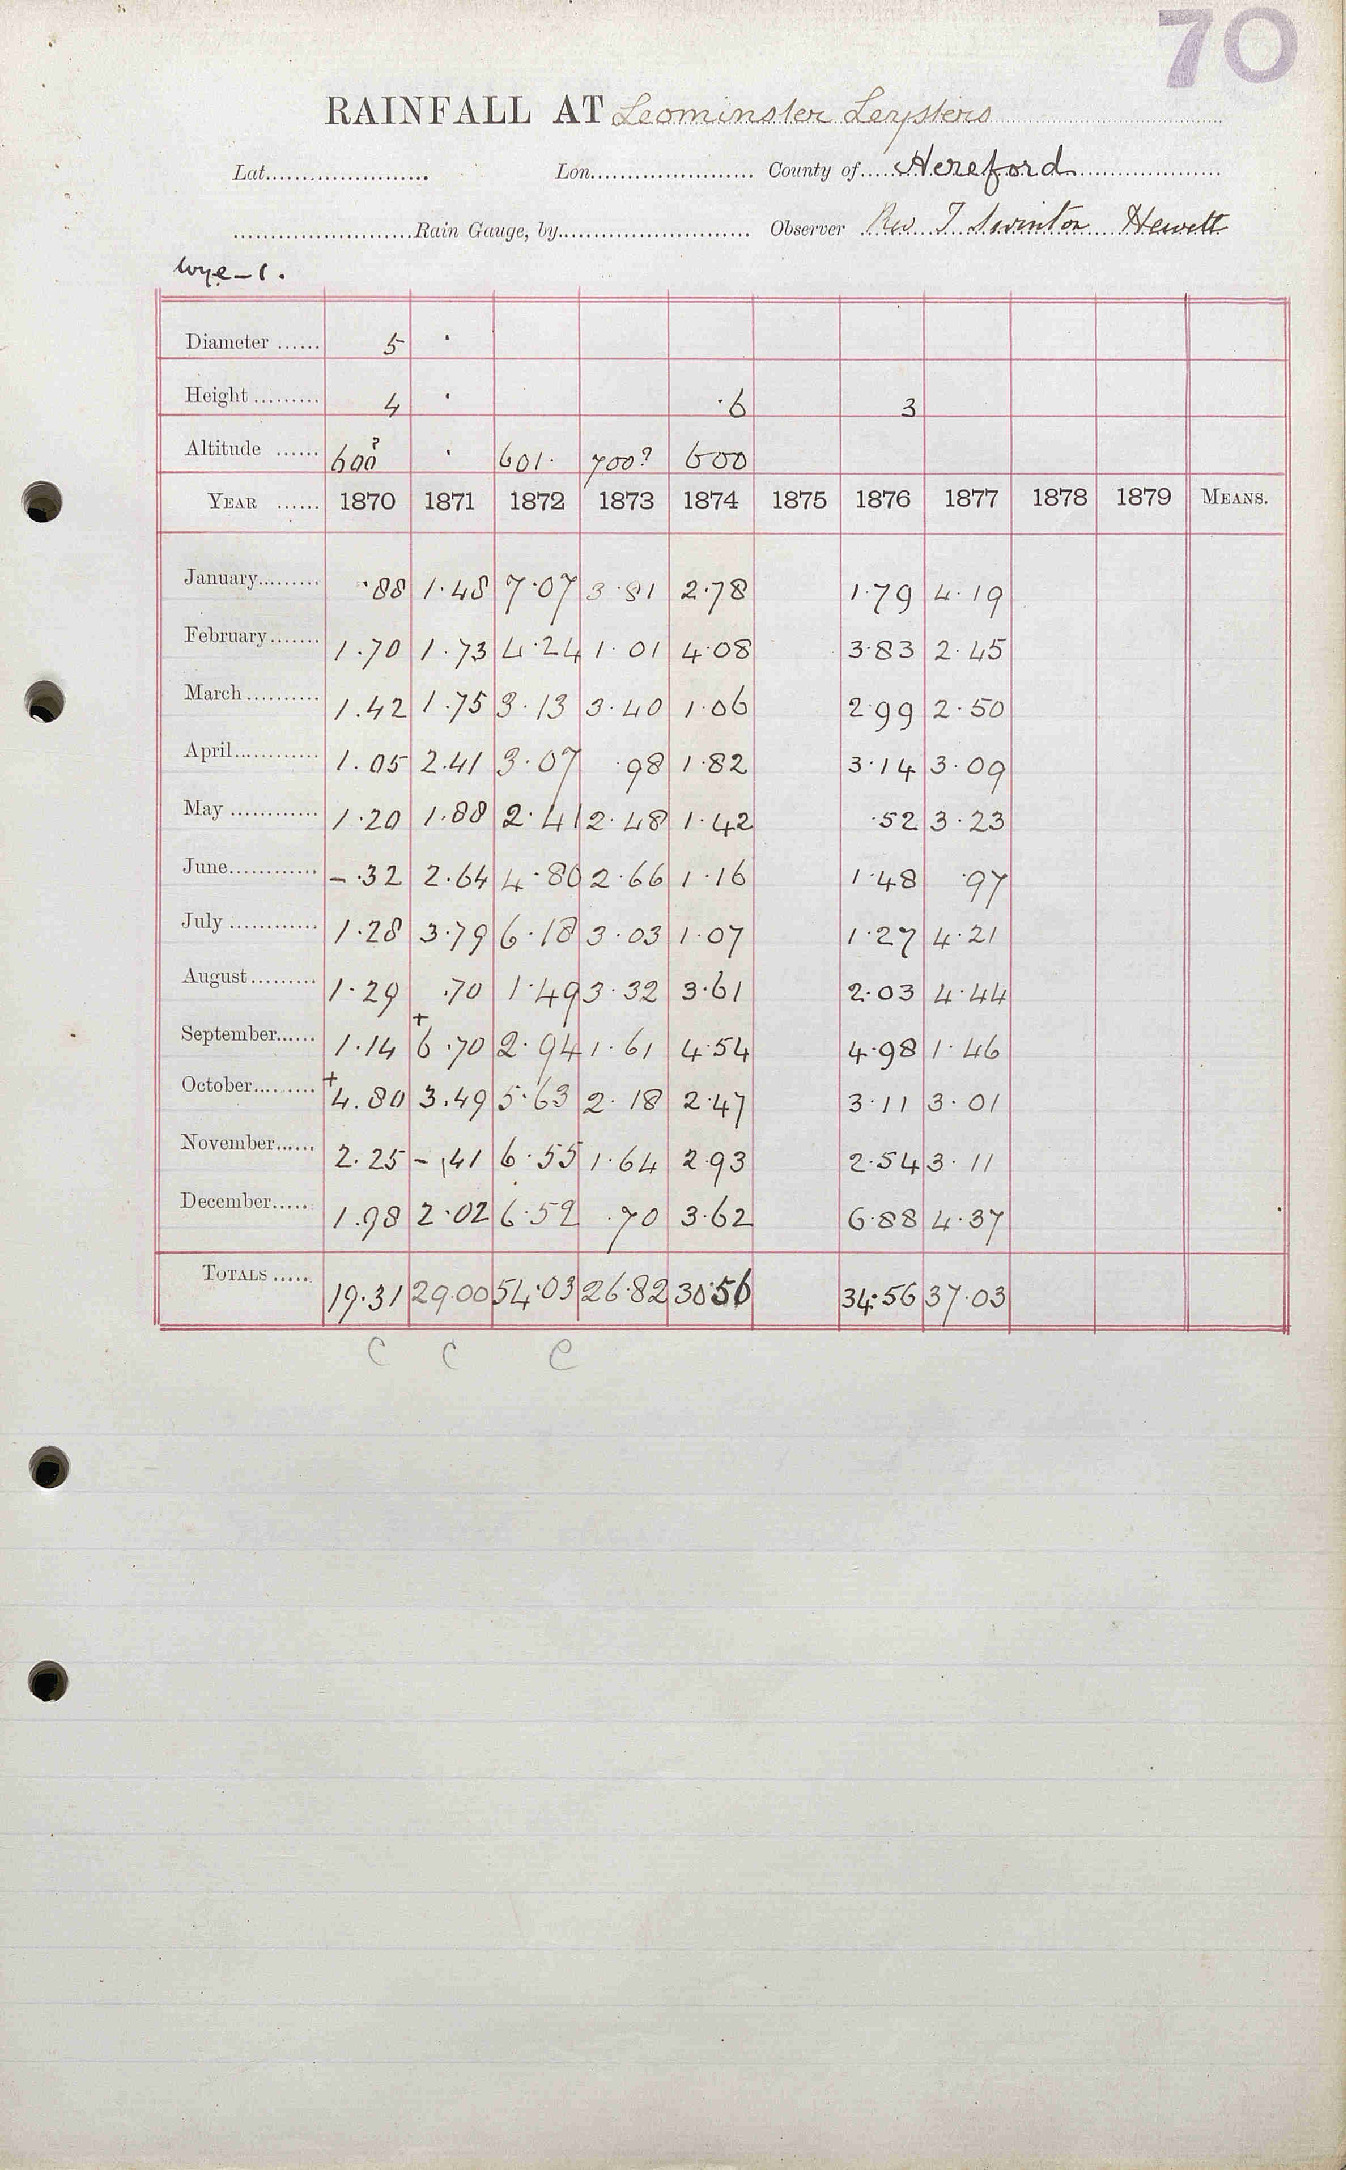 70
RAINFALL AT Leominster Leysters
Lat. Lon. County of Hereford
Rain Gauge, by Observer Rev T Swinton Hewett
Wye-1.
Diameter 5 ·
Height 4 · ·6 3
Altitude 600? · 601· 700? 600
YEAR 1870 1871 1872 1873 1874 1875 1876 1877 1878 1879 MEANS.
January ·88 1·48 7·07 3·81 2·78 1·79 4·19
February 1·70 1·73 4·24 1·01 4·08 3·83 2·45
March 1·42 1·75 3·13 3·40 1·06 2·99 2·50
April 1·05 2·41 3·07 ·98 1·82 3·14 3·09
May 1·20 1·88 2·41 2·48 1·42 ·52 3·23
June -·32 2·64 4·80 2·66 1·16 1·48 ·97
July 1·28 3·79 6·18 3·03 1·07 1·27 4·21
August 1·29 ·70 1·49 3·32 3·61 2·03 4·44
September 1·14 +6·70 2·94 1·61 4·54 4·98 1·46
October +4·80 3·49 5·63 2·18 2·47 3·11 3·01
November 2·25 -·41 6·55 1·64 2·93 2·54 3·11
December 1·98 2·02 6·52 ·70 3·62 6·88 4·37
TOTALS 19·31 29·00 54·03 26·82 30·56 34·56 37·03
C C C